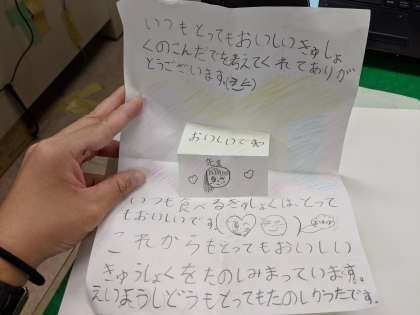 いつもとってもおいしいきゅうしょ
くのこんだてを考えてくれてありが
とうございます。
おいしいです
先生
いつも食べるきゅうしょくは、とって
もおいしいです
これからもとってもおいしい
きゅうしょくをたのしみまっています。
えいようしどうもとってもたのしかったです。